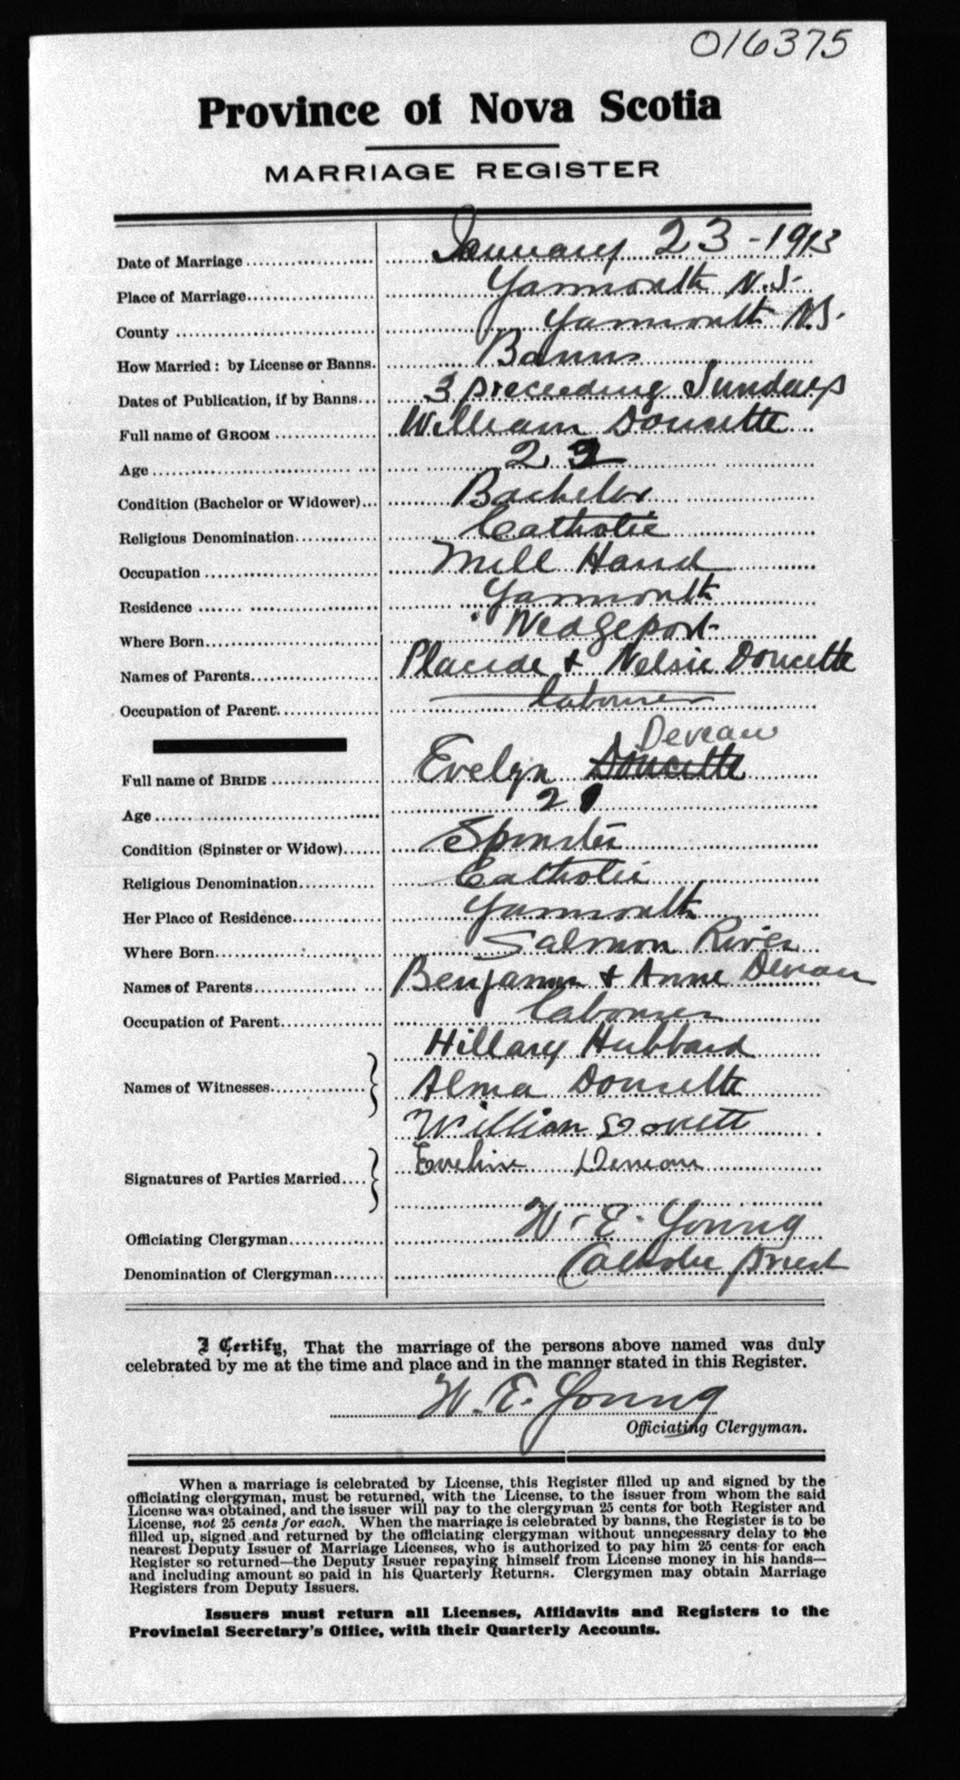 016375
Province of Nova Scotia
MARRIAGE REGISTER
Date of Marriage January 23 - 1913
Place of Marriage Yarmouth N.S.
County Yarmouth N.S.
How Married: by License or Banns. Banns
Dates of Publication, if by Banns 3 preceeding Sundays
Full name of GROOM William Doucette
Age 22
Condition (Bachelor or Widower) Bachelor
Religious Denomination Catholic
Occupation Mill Hand
Residence Yarmouth
Where Born Wedgeport
Names of Parents Placide & Nelsie Doucette
Occupation of Parent labourer
Deveau
Full name of BRIDE Evelyn Doucette
Age 21
Condition (Spinster or Widow) Spinster
Religious Denomination Catholic
Her Place of Residence Yarmouth
Where Born Salmon River
Names of Parents Benjamin & Anne Deveau
Occupation of Parent labourer
Hillary Hubbard
Names of Witnesses Alma Doucette
William Doucett
Signatures of Parties Married Eveline Deveau
Officiating Clergyman W. E. Young
Denomination of Clergyman Catholic Priest
I Certify, That the marriage of the persons above named was duly
celebrated by me at the time and place and in the manner stated in this Register.
W. E. Young
Officiating Clergyman.
When a marriage is celebrated by License, this Register filled up and signed by the
officiating clergyman, must be returned, with the License, to the issuer from whom the said
License was obtained, and the issuer will pay to the clergyman 25 cents for both Register and
License, not 25 cents for each. When the marriage is celebrated by banns, the Register is to be
filled up, signed and returned by the officiating clergyman without unnecessary delay to the
nearest Deputy Issuer of Marriage Licenses, who is authorized to pay him 25 cents for each
Register so returned—the Deputy Issuer repaying himself from License money in his hands—
and including amount so paid in his Quarterly Returns. Clergymen may obtain Marriage
Registers from Deputy Issuers.
Issuers must return all Licenses, Affidavits and Registers to the
Provincial Secretary's Office, with their Quarterly Accounts.